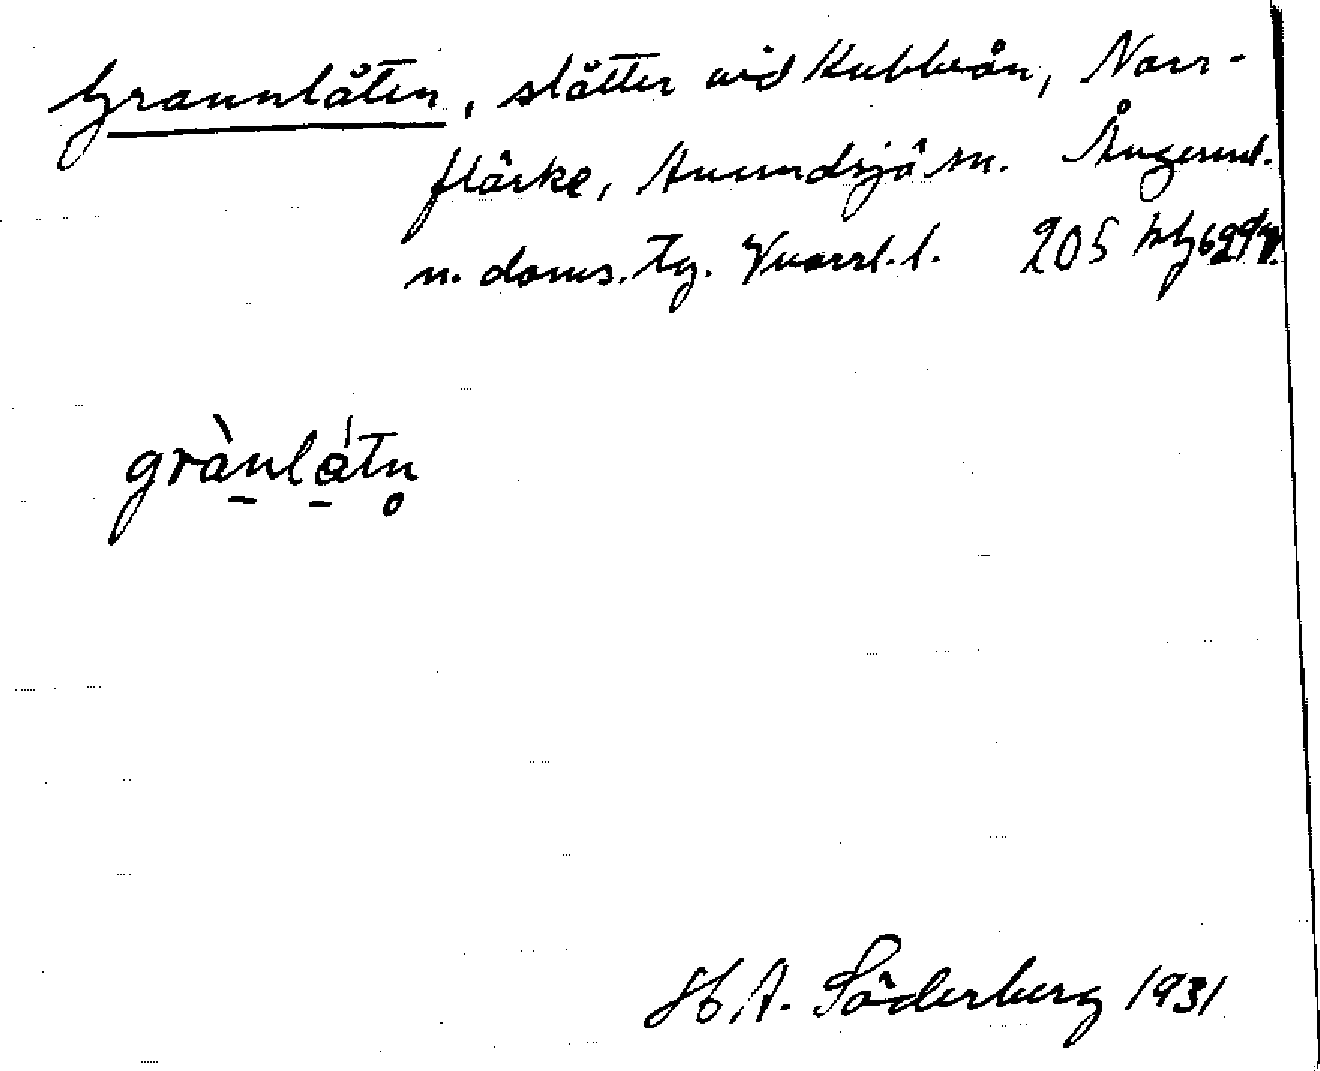 Grannlåten, slåtter vid Kubbeån, Norr-
flärke, Anundsjö sn. Ångerml.
n. doms. tg. 205
grànlátn
H. A. Söderberg 1931